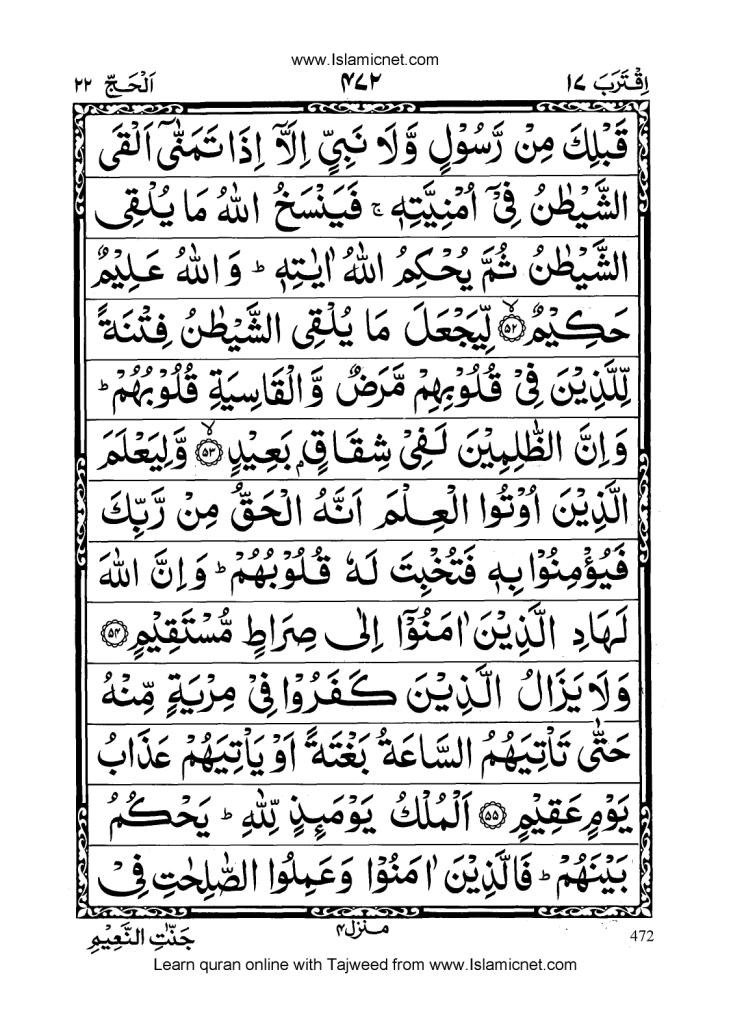 www.Islamicnet.com
اِقْتَرَبَ ١٧
٤٧٢
اَلْحَجّ ٢٢
قَبْلِكَ مِنْ رَّسُوْلٍ وَّلَا نَبِيٍّ اِلَّاۤ اِذَا تَمَنّٰۤى اَلْقَى
الشَّيْطٰنُ فِيْۤ اُمْنِيَّتِهٖ ۚ فَيَنْسَخُ اللّٰهُ مَا يُلْقِى
الشَّيْطٰنُ ثُمَّ يُحْكِمُ اللّٰهُ اٰيٰتِهٖ ؕ وَاللّٰهُ عَلِيْمٌ
حَكِيْمٌ ۙ﴿۵۲﴾ لِّيَجْعَلَ مَا يُلْقِى الشَّيْطٰنُ فِتْنَةً
لِّلَّذِيْنَ فِيْ قُلُوْبِهِمْ مَّرَضٌ وَّالْقَاسِيَةِ قُلُوْبُهُمْ ؕ
وَاِنَّ الظّٰلِمِيْنَ لَفِيْ شِقَاقٍۭ بَعِيْدٍ ۙ﴿۵۳﴾ وَّلِيَعْلَمَ
الَّذِيْنَ اُوْتُوا الْعِلْمَ اَنَّهُ الْحَقُّ مِنْ رَّبِّكَ
فَيُؤْمِنُوْا بِهٖ فَتُخْبِتَ لَهٗ قُلُوْبُهُمْ ؕ وَاِنَّ اللّٰهَ
لَهَادِ الَّذِيْنَ اٰمَنُوْۤا اِلٰى صِرَاطٍ مُّسْتَقِيْمٍ ﴿۵۴﴾
وَلَا يَزَالُ الَّذِيْنَ كَفَرُوْا فِيْ مِرْيَةٍ مِّنْهُ
حَتّٰى تَاْتِيَهُمُ السَّاعَةُ بَغْتَةً اَوْ يَاْتِيَهُمْ عَذَابُ
يَوْمٍ عَقِيْمٍ ﴿۵۵﴾ اَلْمُلْكُ يَوْمَئِذٍ لِّلّٰهِ ؕ يَحْكُمُ
بَيْنَهُمْ ؕ فَالَّذِيْنَ اٰمَنُوْا وَعَمِلُوا الصّٰلِحٰتِ فِيْ
منزل۴
جَنّٰتِ النَّعِيْمِ
472
Learn quran online with Tajweed from www.Islamicnet.com